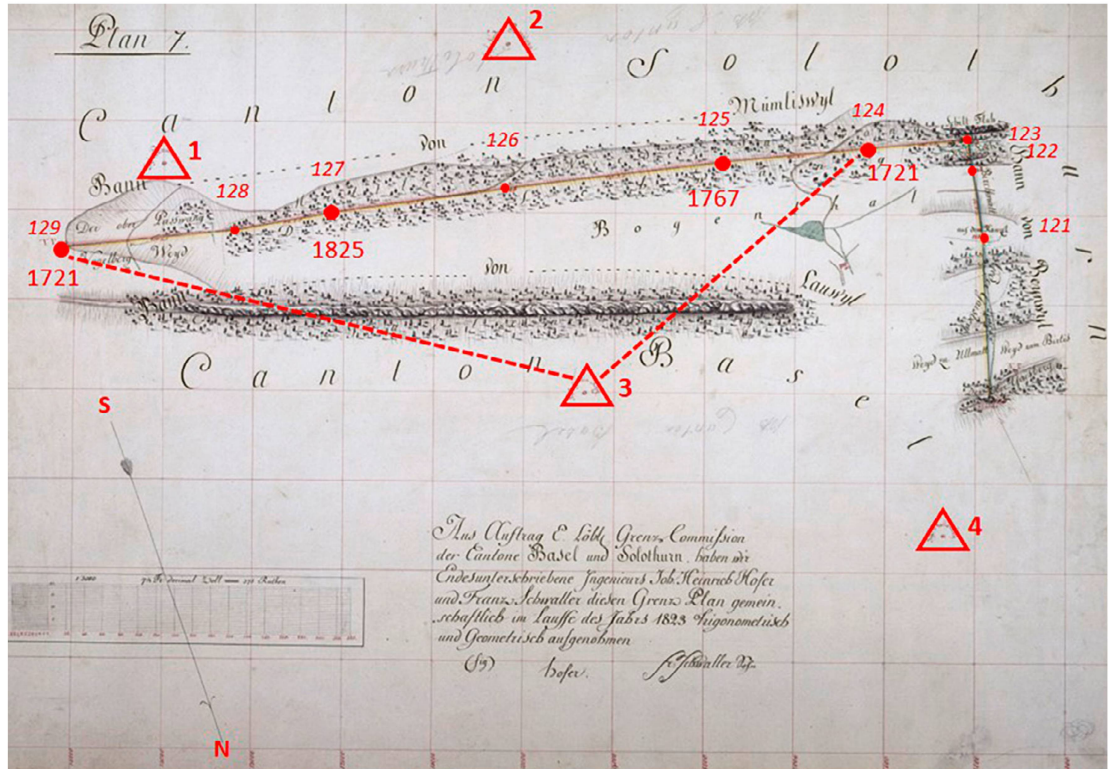 Plan 7.
2
Canton Soloth
Mümliswyl
von
Bann
1
125
124
123
122
126
127
128
129
121
1721
1825
1767
1721
Der ober Passwang
Weyd
Vogelberg
Bogenthal
auf dem Kamel
Bann
von
urn
von
Bann
Lauwyl
Weyd zu Ullmatt
Weyd zum Bürtis
Canton Basel
3
S
4
Aus Auftrag E. Löbl. Grenz-Commission
der Cantone Basel und Solothurn, haben wir
Endesunterschriebene Ingenieurs Joh. Heinrich Hofer
und Franz Schwaller diesen Grenz Plan gemein
schaftlich im Lauffe des Jahrs 1823 Trigonometrisch
und Geometrisch aufgenohmen
(Sig) hofer.
Fr. Schwaller
N